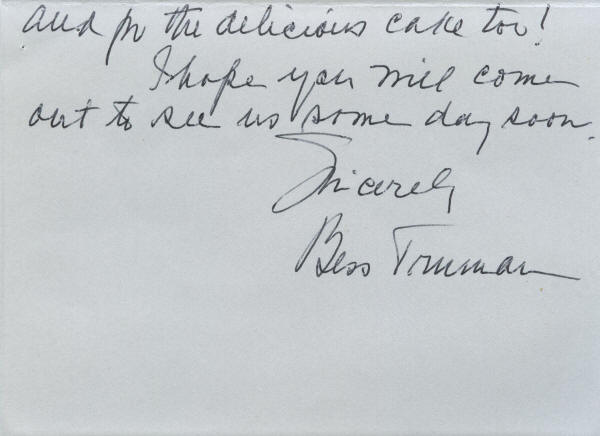 and for the delicious cake too!
I hope you will come
out to see us some day soon.
Sincerely
Bess Truman